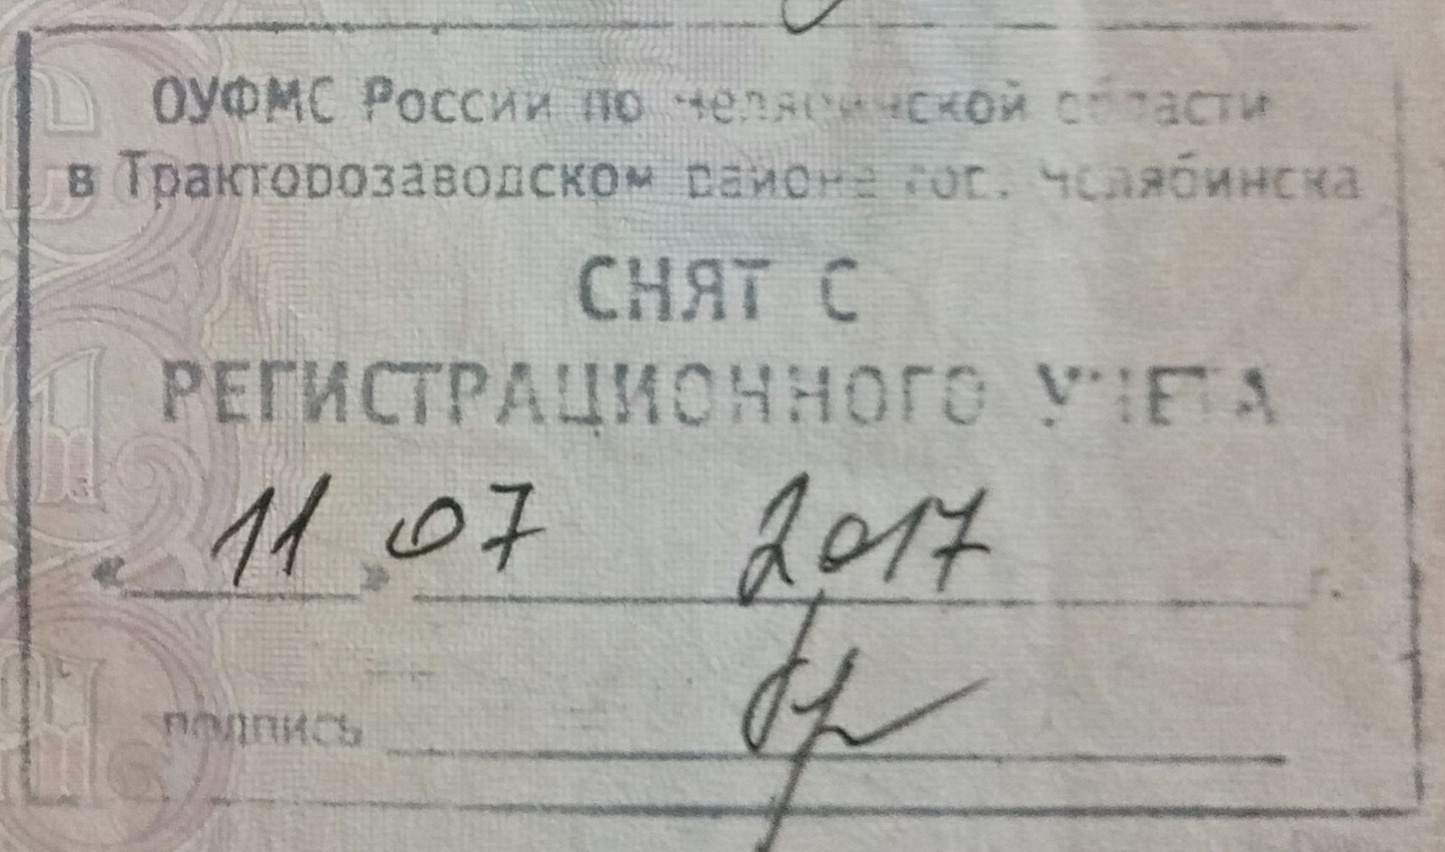 ОУФМС России по Челябинской области
в Тракторозаводском районе гор. Челябинска
СНЯТ С
РЕГИСТРАЦИОННОГО УЧЕТА
« 11 » 07 2017 г.
подпись